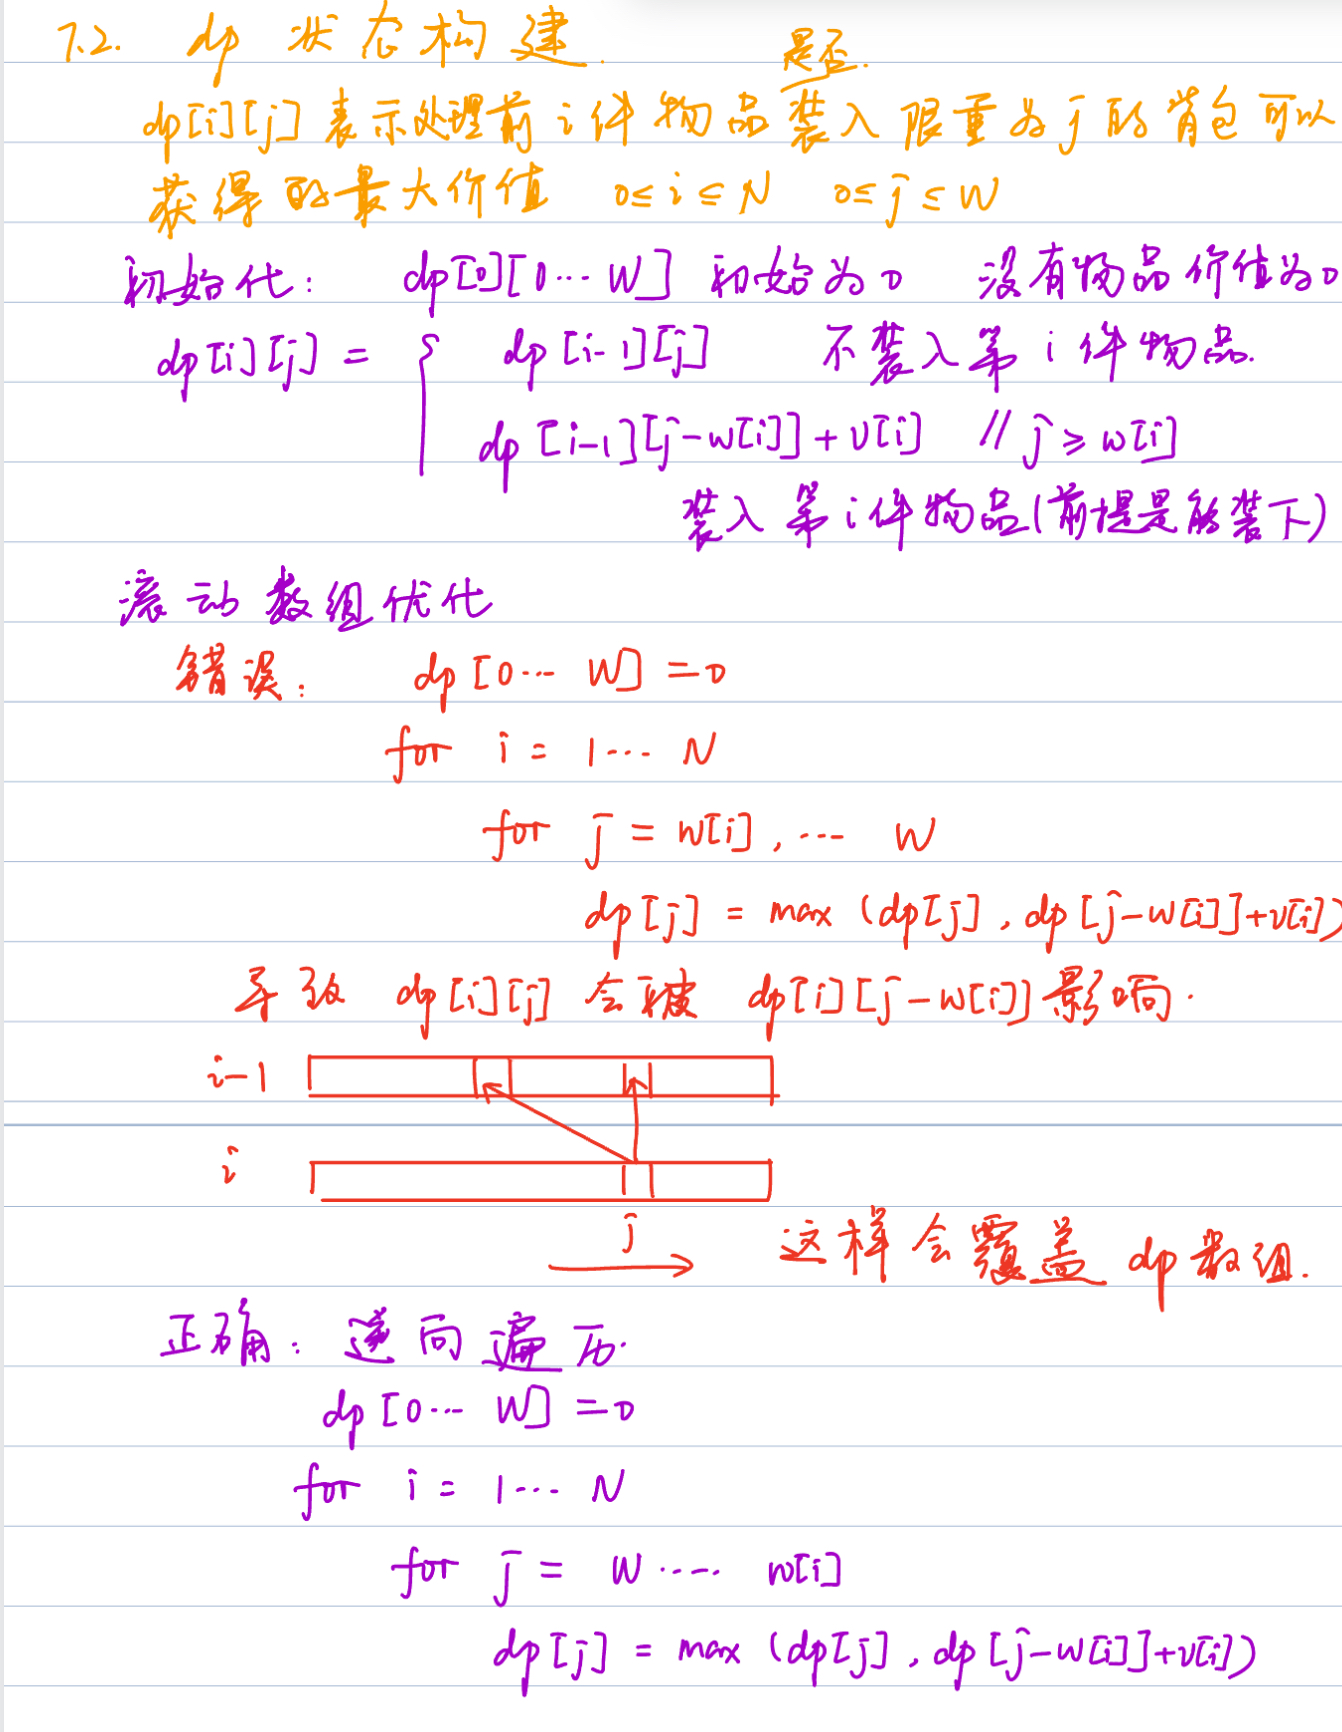 7.2. dp 状态构建.
是否.
dp[i][j] 表示处理前 i 件物品装入限重为 j 的背包可以
获得的最大价值 0≤i≤N 0≤j≤W
初始化: dp[0][0...W] 初始为0 没有物品价值为0
dp[i][j] = { dp[i-1][j] 不装入第 i 件物品.
dp[i-1][j-w[i]]+v[i] // j≥w[i]
装入第 i 件物品(前提是能装下)
滚动数组优化
错误: dp[0...W]=0
for i = 1...N
for j = w[i], ... W
dp[j] = max (dp[j], dp[j-w[i]]+v[i])
导致 dp[i][j] 会被 dp[i][j-w[i]] 影响.
i-1
i
j
这样会覆盖 dp 数组.
正确: 逆向遍历.
dp[0...W]=0
for i = 1...N
for j = W .... w[i]
dp[j] = max (dp[j], dp[j-w[i]]+v[i])